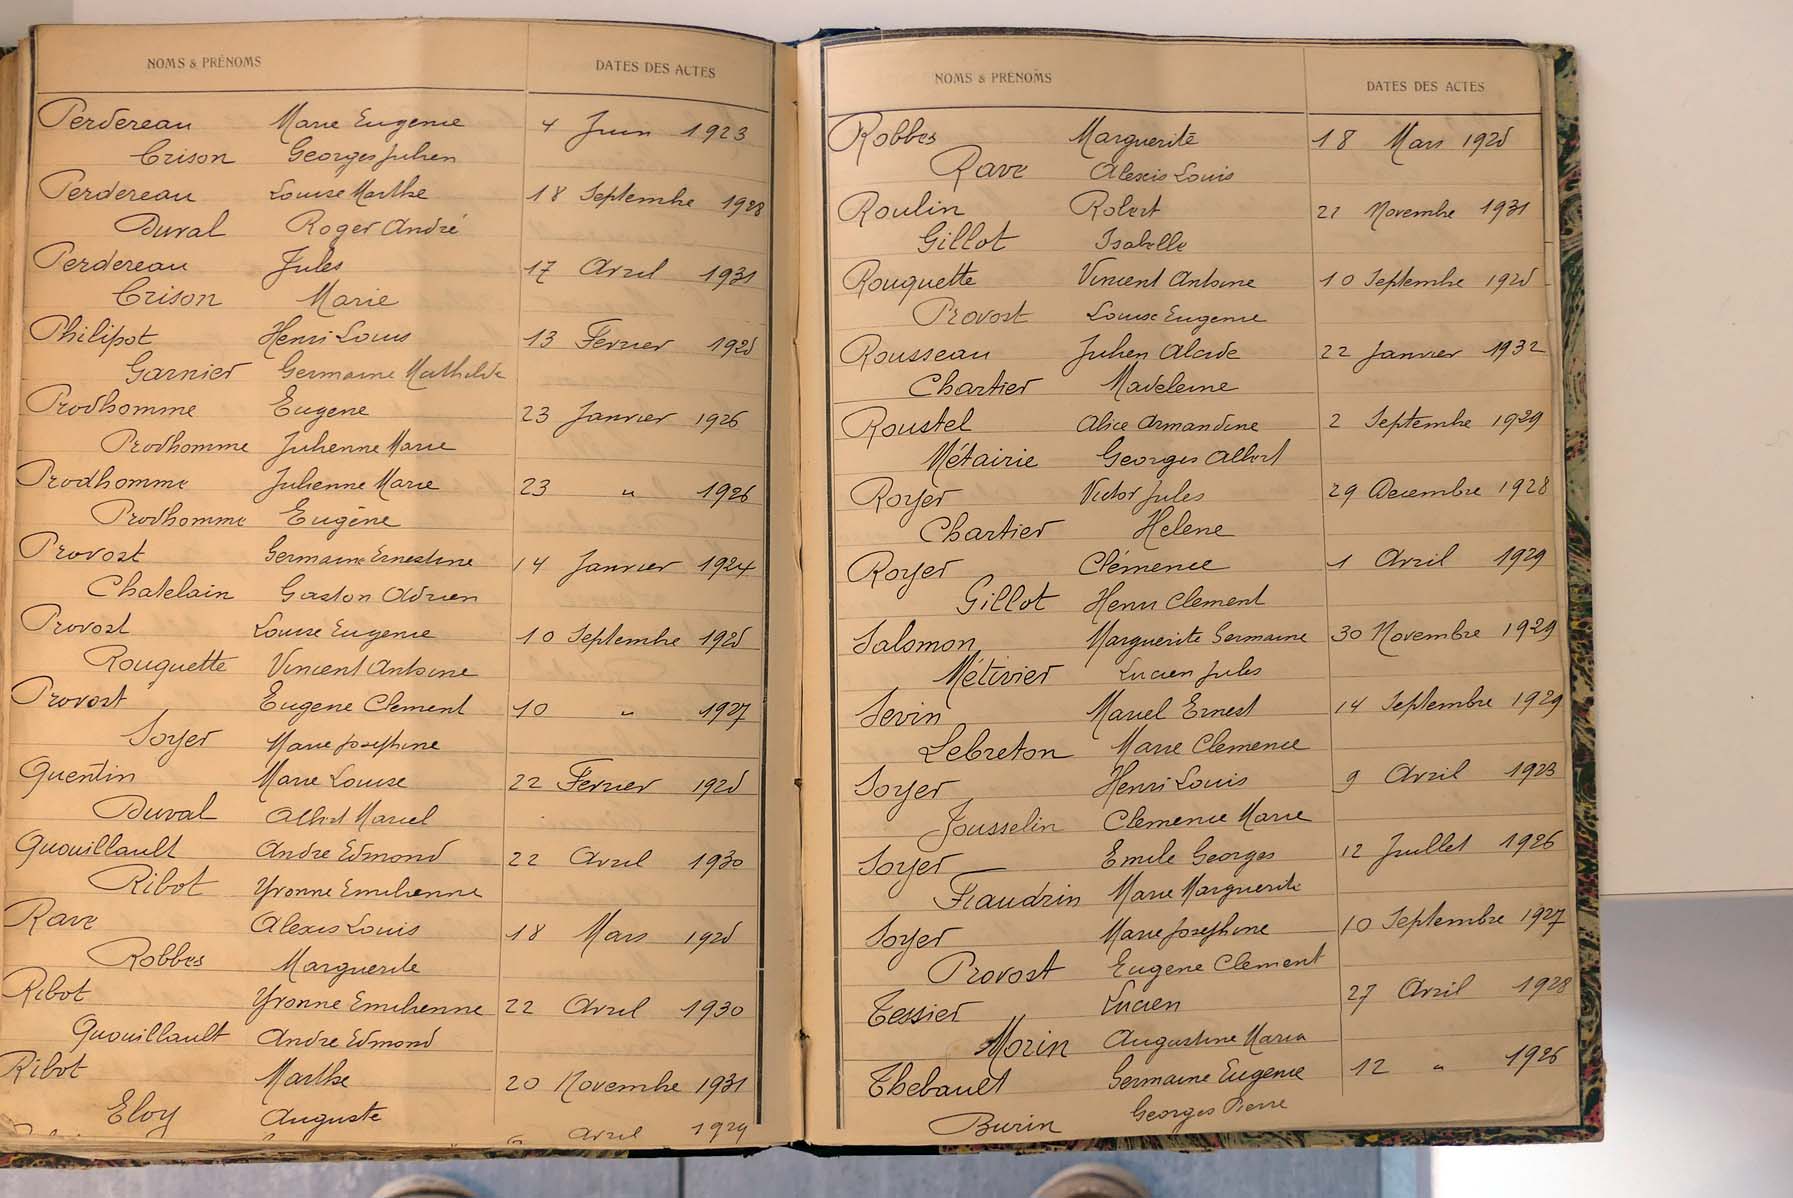 NOMS & PRÉNOMS DATES DES ACTES
Perdereau Marie Eugenie 4 Juin 1923
Crison Georges Julien
Perdereau Louise Marthe 18 Septembre 1928
Duval Roger André
Perdereau Jules 17 Avril 1931
Crison Marie
Philipot Henri Louis 13 Fevrier 1925
Garnier Germaine Mathilde
Prodhomme Eugene 23 Janvier 1926
Prodhomme Julienne Marie
Prodhomme Julienne Marie 23 " 1926
Prodhomme Eugène
Provost Germaine Ernestine 14 Janvier 1924
Chatelain Gaston Adrien
Provost Louise Eugenie 10 Septembre 1925
Rouquette Vincent Antoine
Provost Eugene Clement 10 " 1927
Soyer Marie Josephine
Quentin Marie Louise 22 Fevrier 1925
Duval Albert Marcel
Quouillault Andre Edmond 22 Avril 1930
Ribot Yvonne Emilienne
Rave Alexis Louis 18 Mars 1925
Robbes Marguerite
Ribot Yvonne Emilienne 22 Avril 1930
Quouillault Andre Edmond
Ribot Marthe 20 Novembre 1931
Eloy Auguste
Avril 1929
NOMS & PRÉNOMS DATES DES ACTES
Robbes Marguerite 18 Mars 1925
Rave Alexis Louis
Roulin Robert 21 Novembre 1931
Gillot Isabelle
Rouquette Vincent Antoine 10 Septembre 1925
Provost Louise Eugenie
Rousseau Julien Alcide 22 Janvier 1932
Chartier Madeleine
Roustel Alice Armandine 2 Septembre 1929
Métairie Georges Albert
Royer Victor Jules 29 Decembre 1928
Chartier Helene
Royer Clémence 1 Avril 1929
Gillot Henri Clement
Salomon Marguerite Germaine 30 Novembre 1929
Métivier Lucien Jules
Sevin Marcel Ernest 14 Septembre 1929
Lebreton Marie Clemence
Soyer Henri Louis 9 Avril 1923
Jousselin Clemence Marie
Soyer Emile Georges 12 Juillet 1926
Fraudrin Marie Marguerite
Soyer Marie Josephine 10 Septembre 1927
Provost Eugene Clement
Tessier Lucien 27 Avril 1928
Morin Augustine Maria
Thebault Germaine Eugenie 12 " 1926
Burin Georges Pierre